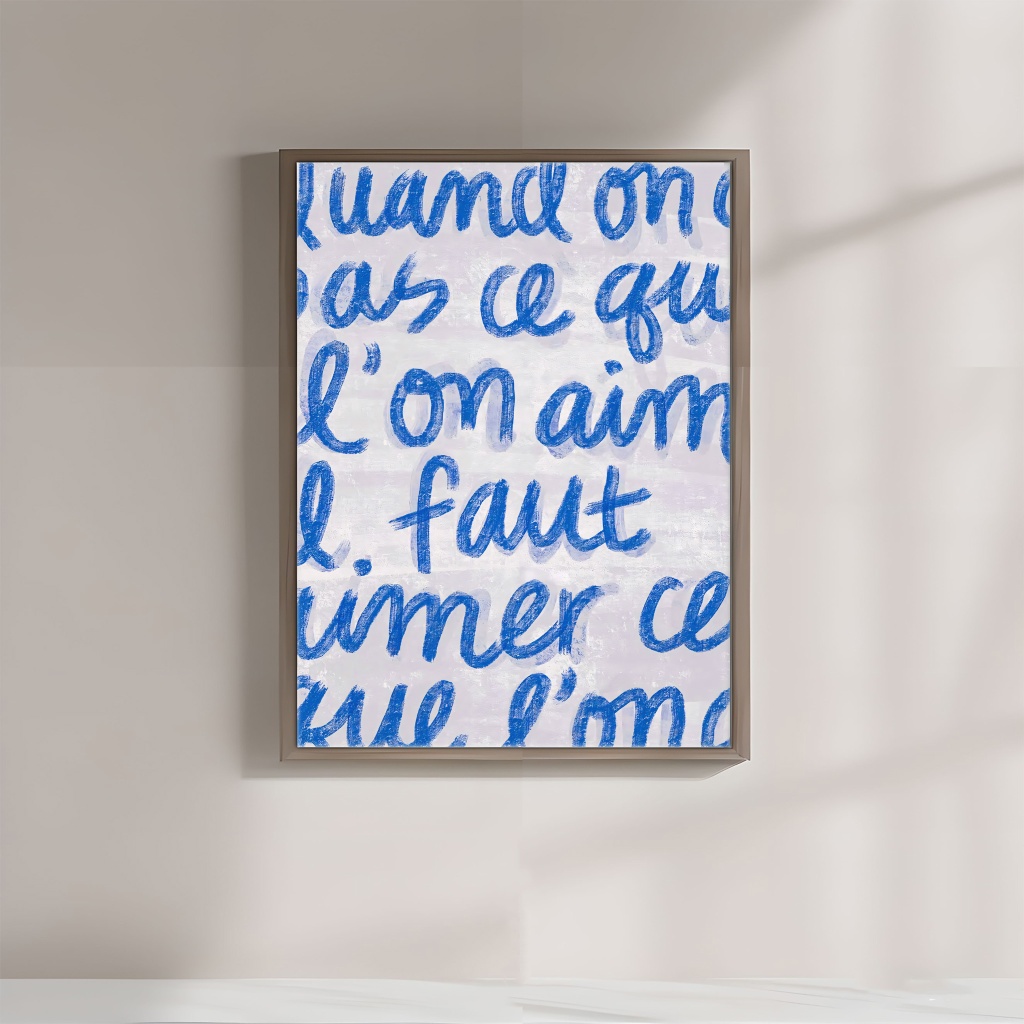 Quand on a
pas ce qu
l'on aim
l faut
aimer ce
que l'on a